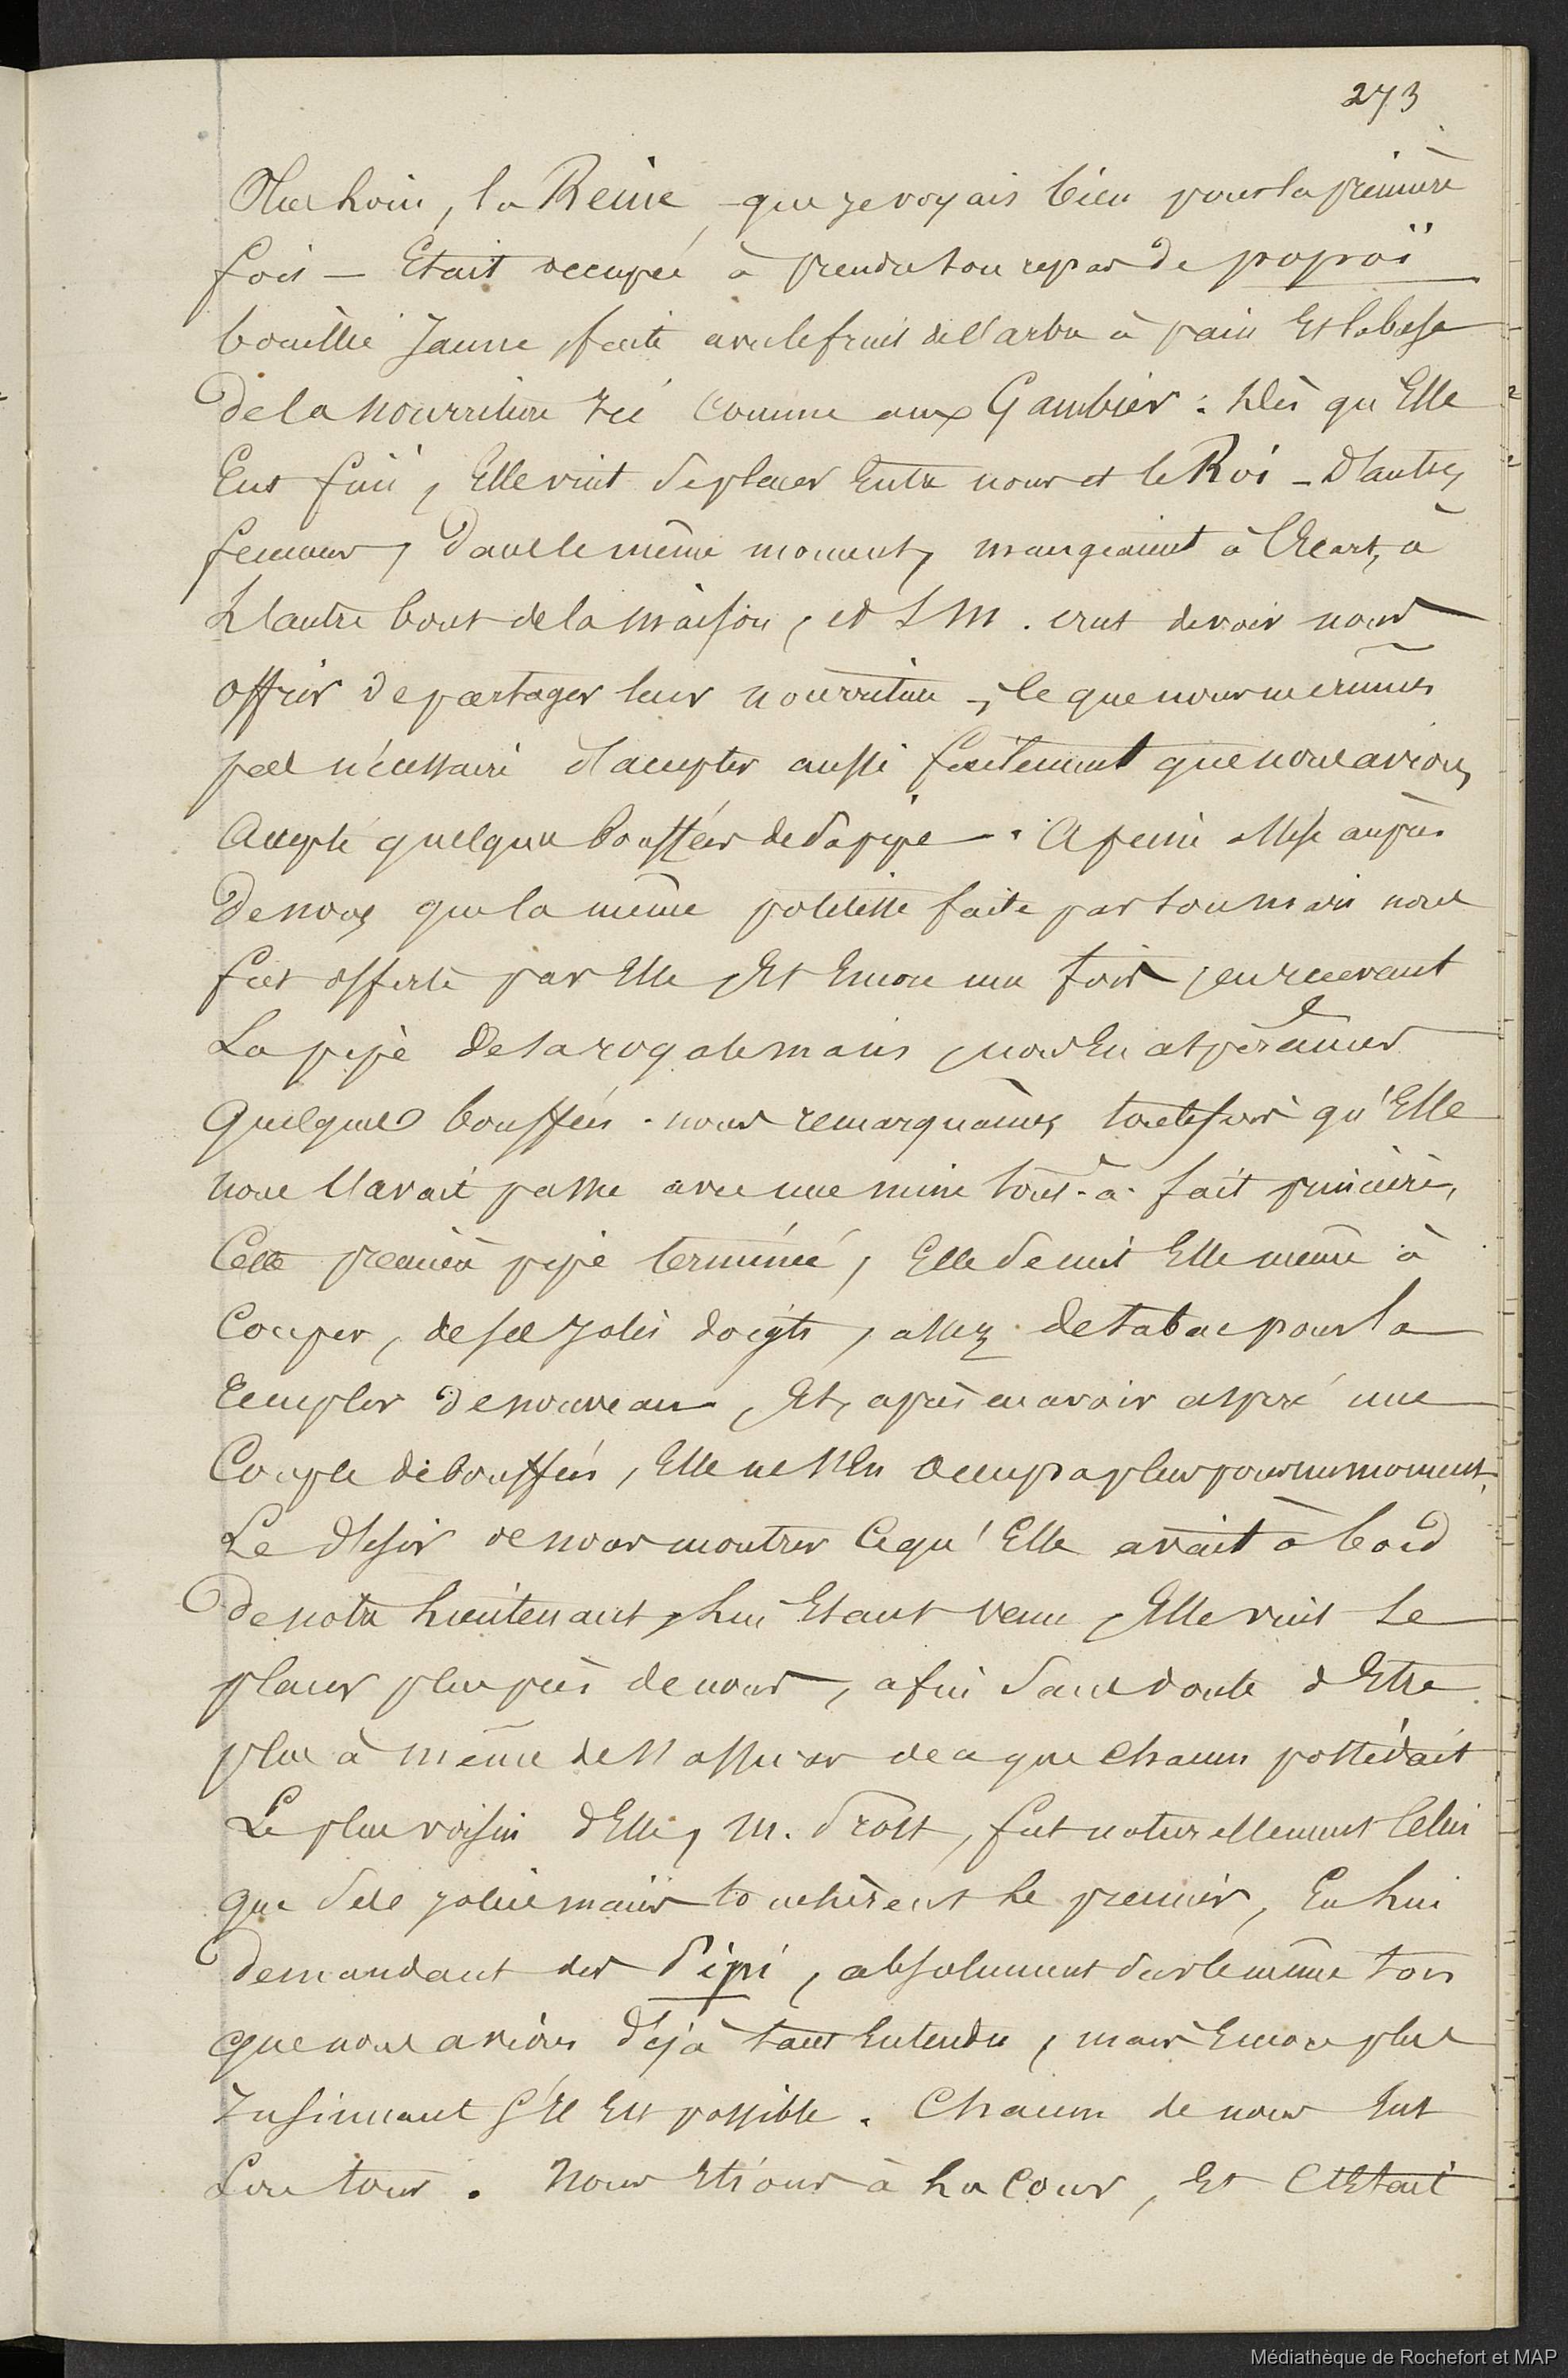 273
Plus loin, la Reine, que je voyais bien pour la première
fois — Etait occupée à prendre son repas de popoï
bouillie jaune, faite avec le fruit de l'arbre à pain Est la base
de la nourriture ici comme aux Gambier. Dès qu'Elle
Eut fini, Elle vint se placer Entre nous et le Roi — D'autres
femmes, dans le même moment, mangeaient à l'Ecart, à
L'autre bout de la maison, et S M. crut devoir nous
offrir de partager leur nourriture —, ce que nous ne crûmes
pas nécessaire d'accepter aussi facilement que nous avions
Accepté quelques bouffées de sa pipe —. A peine assise auprès
De nous que la même politesse faite par son mari nous
fut offerte par Elle, Et Encore une fois, en recevant
La pipe de sa royale main, nous En aspirâmes
Quelques bouffées. nous remarquâmes toutefois qu'Elle
nous l'avait passée avec une mine tout-à-fait princière,
Cette première pipe terminée, Elle se mit Elle même à
Couper, de ses jolis doigts, assez de tabac pour la
Remplir de nouveau, Et, après en avoir aspiré une
Couple de bouffées, Elle ne s'En occupa plus pour un moment.
Le désir de nous montrer ce qu'Elle avait à bord
De notre Lieutenant, Lui Etant venu, Elle vint se
placer plus près de nous, afin sans doute d'Etre
plus à même de s'assurer de ce que chacun possédait
Le plus voisin d'Elle, M. , fut naturellement Celui
que ses jolies mains touchèrent le premier, En Lui
Demandant des Pipi, absolument sur le même ton
que nous avions déjà tant Entendu, mais Encore plus
Insinuant S'il Est possible. Chacun de nous Eut
Son tour. Nous Etions à La Cour, Et C'Etait
Médiathèque de Rochefort et MAP